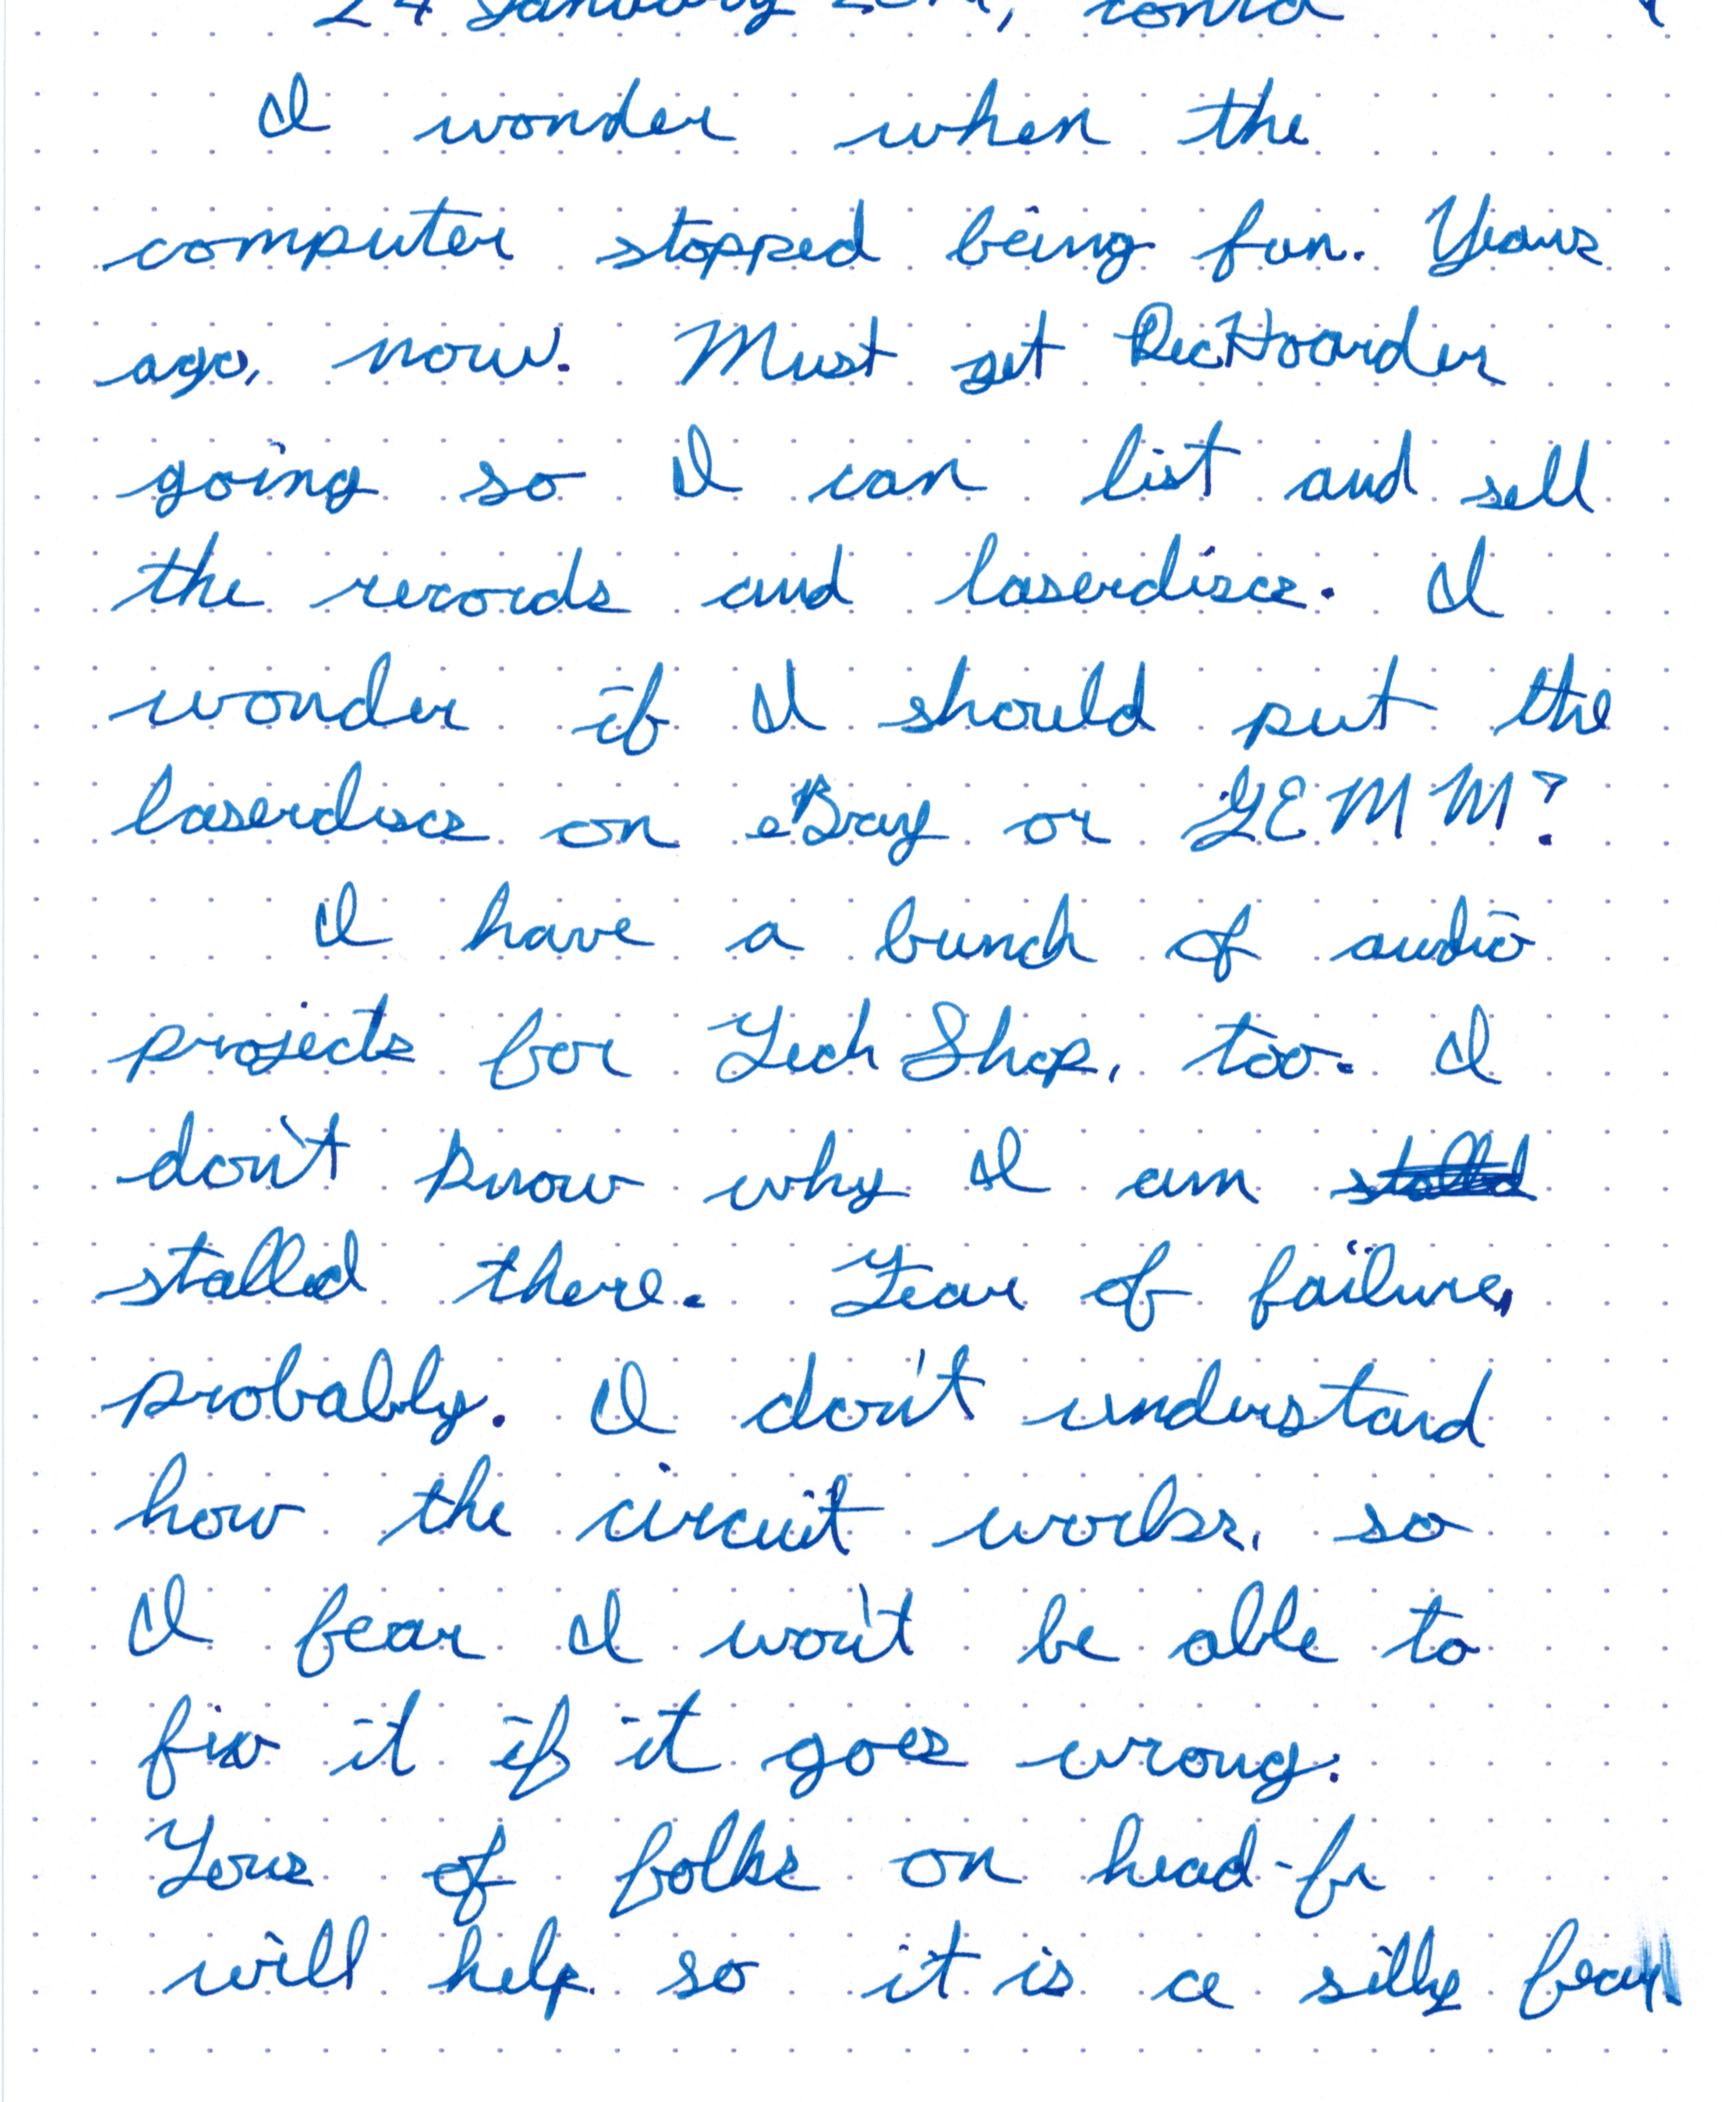 24 January contd
I wonder when the
computer stopped being fun. Years
ago, now. Must get RecHoarder
going so I can list and sell
the records and laserdiscs. I
wonder if I should put the
laserdiscs on eBay or GEMM?
I have a bunch of audio
projects for TechShop, too. I
don't know why I am stalled
stalled there. Fear of failure,
probably. I don't understand
how the circuit works, so
I fear I won't be able to
fix it if it goes wrong.
Tons of folks on head-fi
will help, so it is a silly fear.